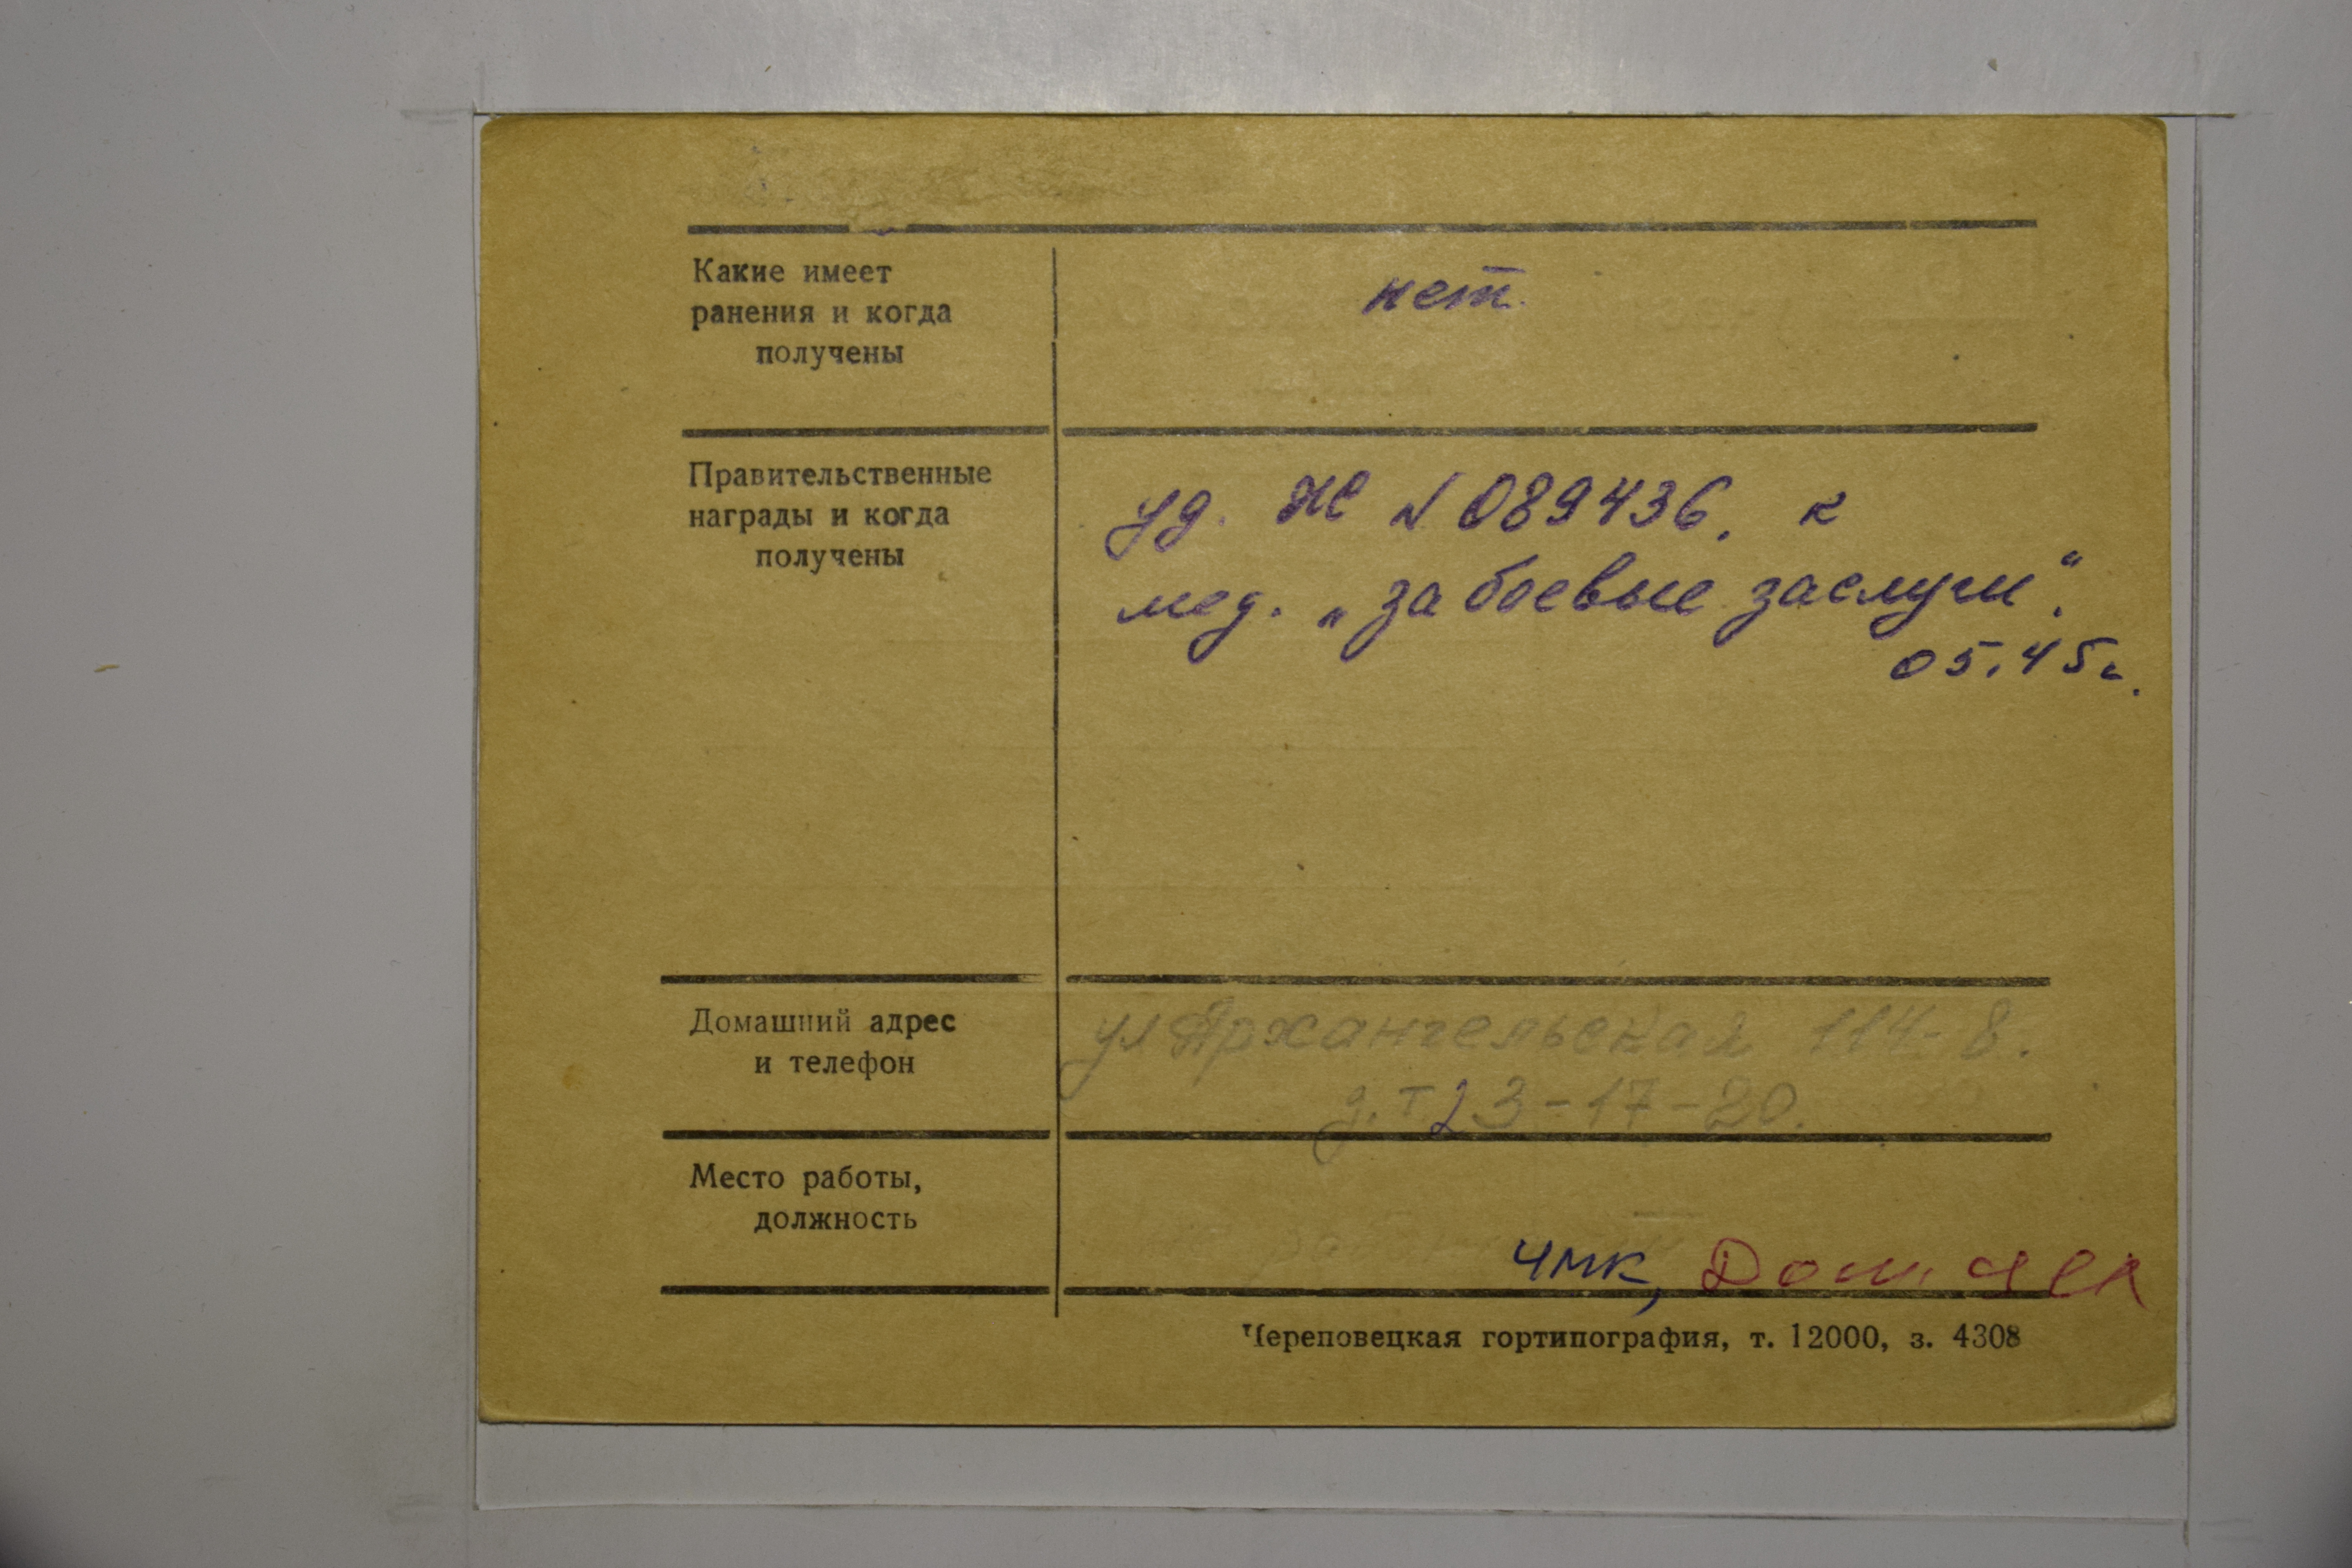 Какие имеет
ранения и когда
получены
нет.
Правительственные
награды и когда
получены
уд. Ж № 089436. к
мед. „за боевые заслуги“.
05.45г.
Домашний адрес
и телефон
ул Архангельская 114-8.
д.т 23-17-20.
Место работы,
должность
ЧМК,
Череповецкая гортипография, т. 12000, з. 4308